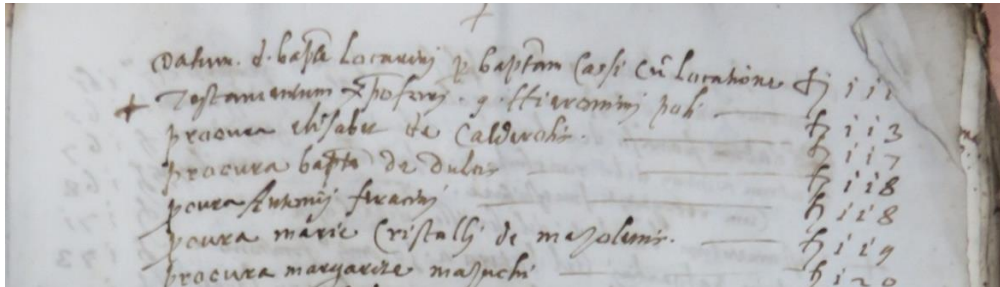 Datum d. bapte Locarini p baptam Cassi cū locatione fz 111
+ Testamentum xpofori q. Hieronimi poli fz 113
procura elisabet de Calderolis. fz 117
procura bapte de dulcis fz 118
pcura Antonij feracini fz 118
pcura marie Cristalli de mazolenis. fz 119
procura margarite mazuchi fz 120